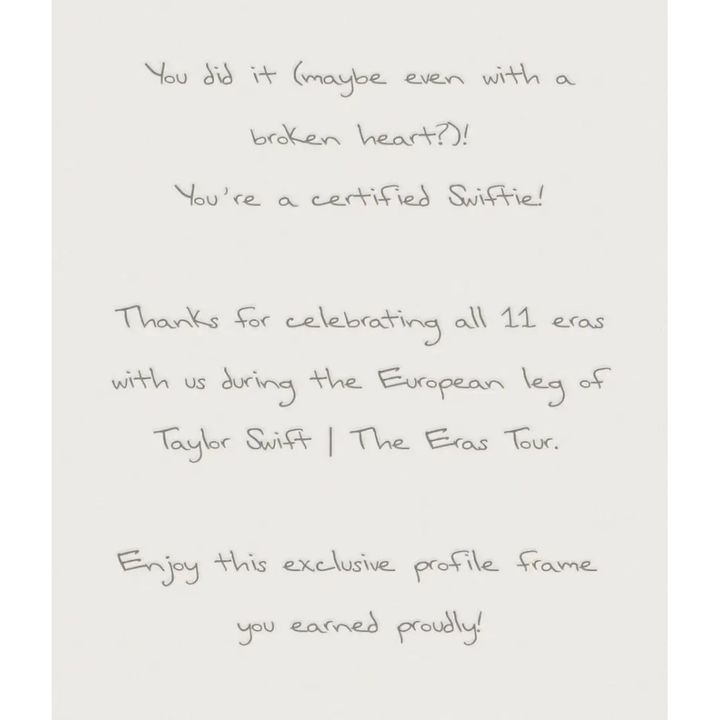 You did it (maybe even with a
broken heart?)!
You're a certified Swiftie!
Thanks for celebrating all 11 eras
with us during the European leg of
Taylor Swift | The Eras Tour.
Enjoy this exclusive profile frame
you earned proudly!